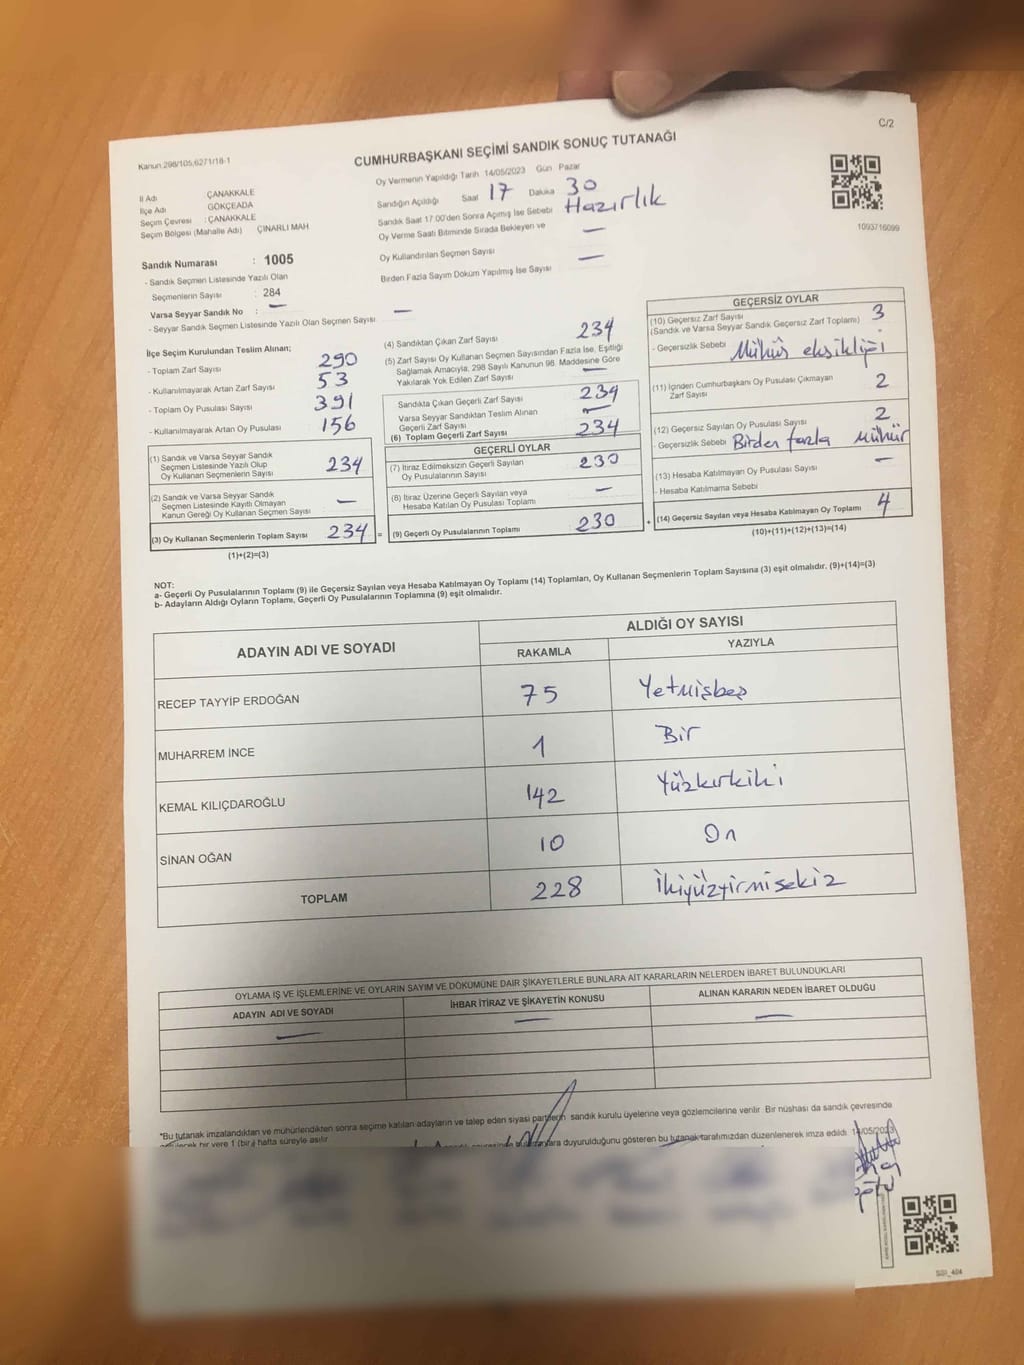 C/2
Kanun 298/105,6271/18-1
CUMHURBAŞKANI SEÇİMİ SANDIK SONUÇ TUTANAĞI
İl Adı ÇANAKKALE
İlçe Adı GÖKÇEADA
Seçim Çevresi : ÇANAKKALE
Seçim Bölgesi (Mahalle Adı) ÇINARLI MAH
Oy Vermenin Yapıldığı Tarih 14/05/2023 Gün Pazar
Sandığın Açıldığı Saat 17 Dakika 30
Sandık Saat 17:00'den Sonra Açılmış İse Sebebi Hazırlık
Oy Verme Saati Bitiminde Sırada Bekleyen ve —
Oy Kullandırılan Seçmen Sayısı
Birden Fazla Sayım Döküm Yapılmış İse Sayısı —
1093716099
Sandık Numarası : 1005
- Sandık Seçmen Listesinde Yazılı Olan
Seçmenlerin Sayısı : 284
Varsa Seyyar Sandık No : —
- Seyyar Sandık Seçmen Listesinde Yazılı Olan Seçmen Sayısı —
İlçe Seçim Kurulundan Teslim Alınan;
- Toplam Zarf Sayısı 290
- Kullanılmayarak Artan Zarf Sayısı 53
- Toplam Oy Pusulası Sayısı 391
- Kullanılmayarak Artan Oy Pusulası 156
(1) Sandık ve Varsa Seyyar Sandık
Seçmen Listesinde Yazılı Olup
Oy Kullanan Seçmenlerin Sayısı 234
(2) Sandık ve Varsa Seyyar Sandık
Seçmen Listesinde Kayıtlı Olmayan
Kanun Gereği Oy Kullanan Seçmen Sayısı —
(3) Oy Kullanan Seçmenlerin Toplam Sayısı 234 =
(1)+(2)=(3)
(4) Sandıktan Çıkan Zarf Sayısı 234
(5) Zarf Sayısı Oy Kullanan Seçmen Sayısından Fazla İse, Eşitliği
Sağlamak Amacıyla, 298 Sayılı Kanunun 98. Maddesine Göre
Yakılarak Yok Edilen Zarf Sayısı —
Sandıkta Çıkan Geçerli Zarf Sayısı 234
Varsa Seyyar Sandıktan Teslim Alınan
Geçerli Zarf Sayısı —
(6) Toplam Geçerli Zarf Sayısı 234
GEÇERLİ OYLAR
(7) İtiraz Edilmeksizin Geçerli Sayılan
Oy Pusulalarının Sayısı 230
(8) İtiraz Üzerine Geçerli Sayılan veya
Hesaba Katılan Oy Pusulası Toplamı —
(9) Geçerli Oy Pusulalarının Toplamı 230 +
GEÇERSİZ OYLAR
(10) Geçersiz Zarf Sayısı 3
(Sandık ve Varsa Seyyar Sandık Geçersiz Zarf Toplamı)
- Geçersizlik Sebebi Mühür eksikliği
(11) İçinden Cumhurbaşkanı Oy Pusulası Çıkmayan
Zarf Sayısı 2
(12) Geçersiz Sayılan Oy Pusulası Sayısı 2
- Geçersizlik Sebebi Birden fazla mühür
(13) Hesaba Katılmayan Oy Pusulası Sayısı —
- Hesaba Katılmama Sebebi
(14) Geçersiz Sayılan veya Hesaba Katılmayan Oy Toplamı 4
(10)+(11)+(12)+(13)=(14)
NOT:
a- Geçerli Oy Pusulalarının Toplamı (9) ile Geçersiz Sayılan veya Hesaba Katılmayan Oy Toplamı (14) Toplamları, Oy Kullanan Seçmenlerin Toplam Sayısına (3) eşit olmalıdır. (9)+(14)=(3)
b- Adayların Aldığı Oyların Toplamı, Geçerli Oy Pusulalarının Toplamına (9) eşit olmalıdır.
ADAYIN ADI VE SOYADI ALDIĞI OY SAYISI
RAKAMLA YAZIYLA
RECEP TAYYİP ERDOĞAN 75 Yetmişbeş
MUHARREM İNCE 1 Bir
KEMAL KILIÇDAROĞLU 142 Yüzkırkiki
SİNAN OĞAN 10 On
TOPLAM 228 İkiyüzyirmisekiz
OYLAMA İŞ VE İŞLEMLERİNE VE OYLARIN SAYIM VE DÖKÜMÜNE DAİR ŞİKAYETLERLE BUNLARA AİT KARARLARIN NELERDEN İBARET BULUNDUKLARI
ADAYIN ADI VE SOYADI İHBAR İTİRAZ VE ŞİKAYETİN KONUSU ALINAN KARARIN NEDEN İBARET OLDUĞU
— — —
*Bu tutanak imzalandıktan ve mühürlendikten sonra seçime katılan adayların ve talep eden siyasi partilerin sandık kurulu üyelerine veya gözlemcilerine verilir. Bir nüshası da sandık çevresinde
bir yere 1 (bir) hafta süreyle asılır.
duyurulduğunu gösteren bu tutanak tarafımızdan düzenlenerek imza edildi. 14/05/2023